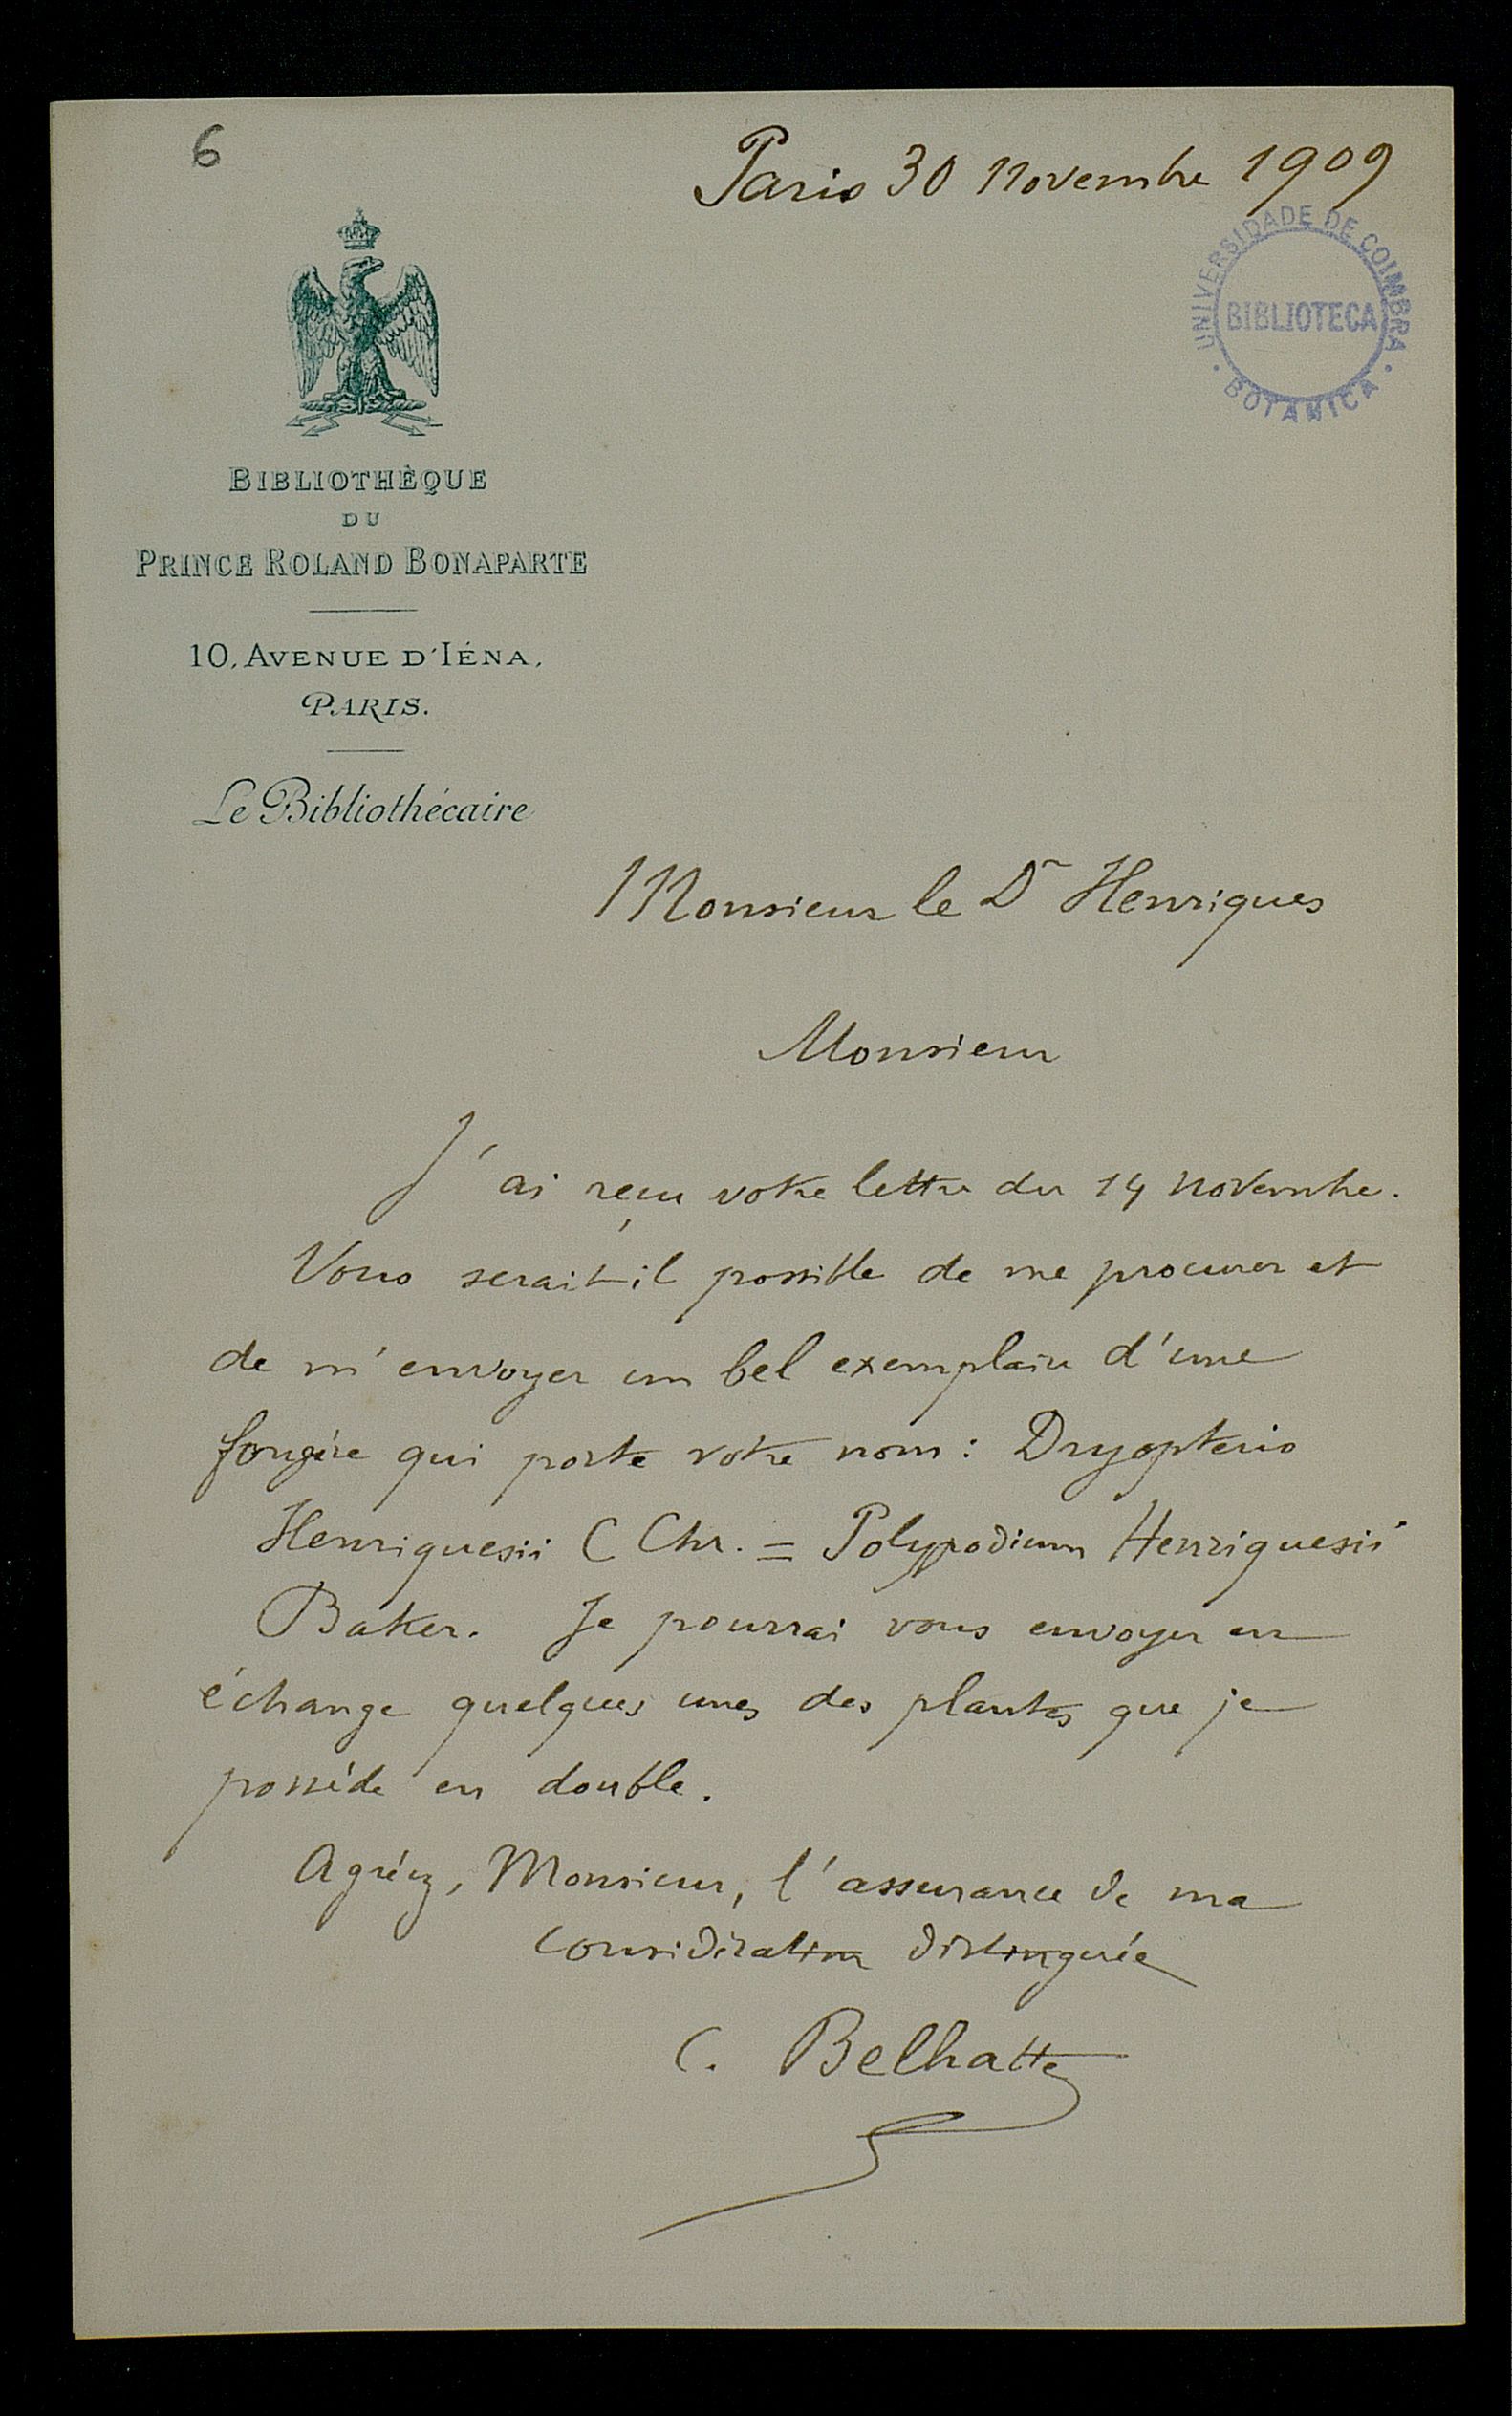 6
Paris 30 Novembre 1909
UNIVERSIDADE DE COIMBRA
BIBLIOTECA
BOTANICA
BIBLIOTHÈQUE
DU
PRINCE ROLAND BONAPARTE
10, AVENUE D'IÉNA,
PARIS.
Le Bibliothécaire
Monsieur le Dr Henriques
Monsieur
J'ai reçu votre lettre du 14 novembre.
Vous serait-il possible de me procurer et
de m'envoyer un bel exemplaire d'une
fougère qui porte votre nom : Dryopteris
Henriquesii C Chr. = Polypodium Henriquesii
Baker. Je pourrai vous envoyer en
échange quelques unes des plantes que je
possède en double.
Agréez, Monsieur, l'assurance de ma
considération distinguée
C. Belhatte